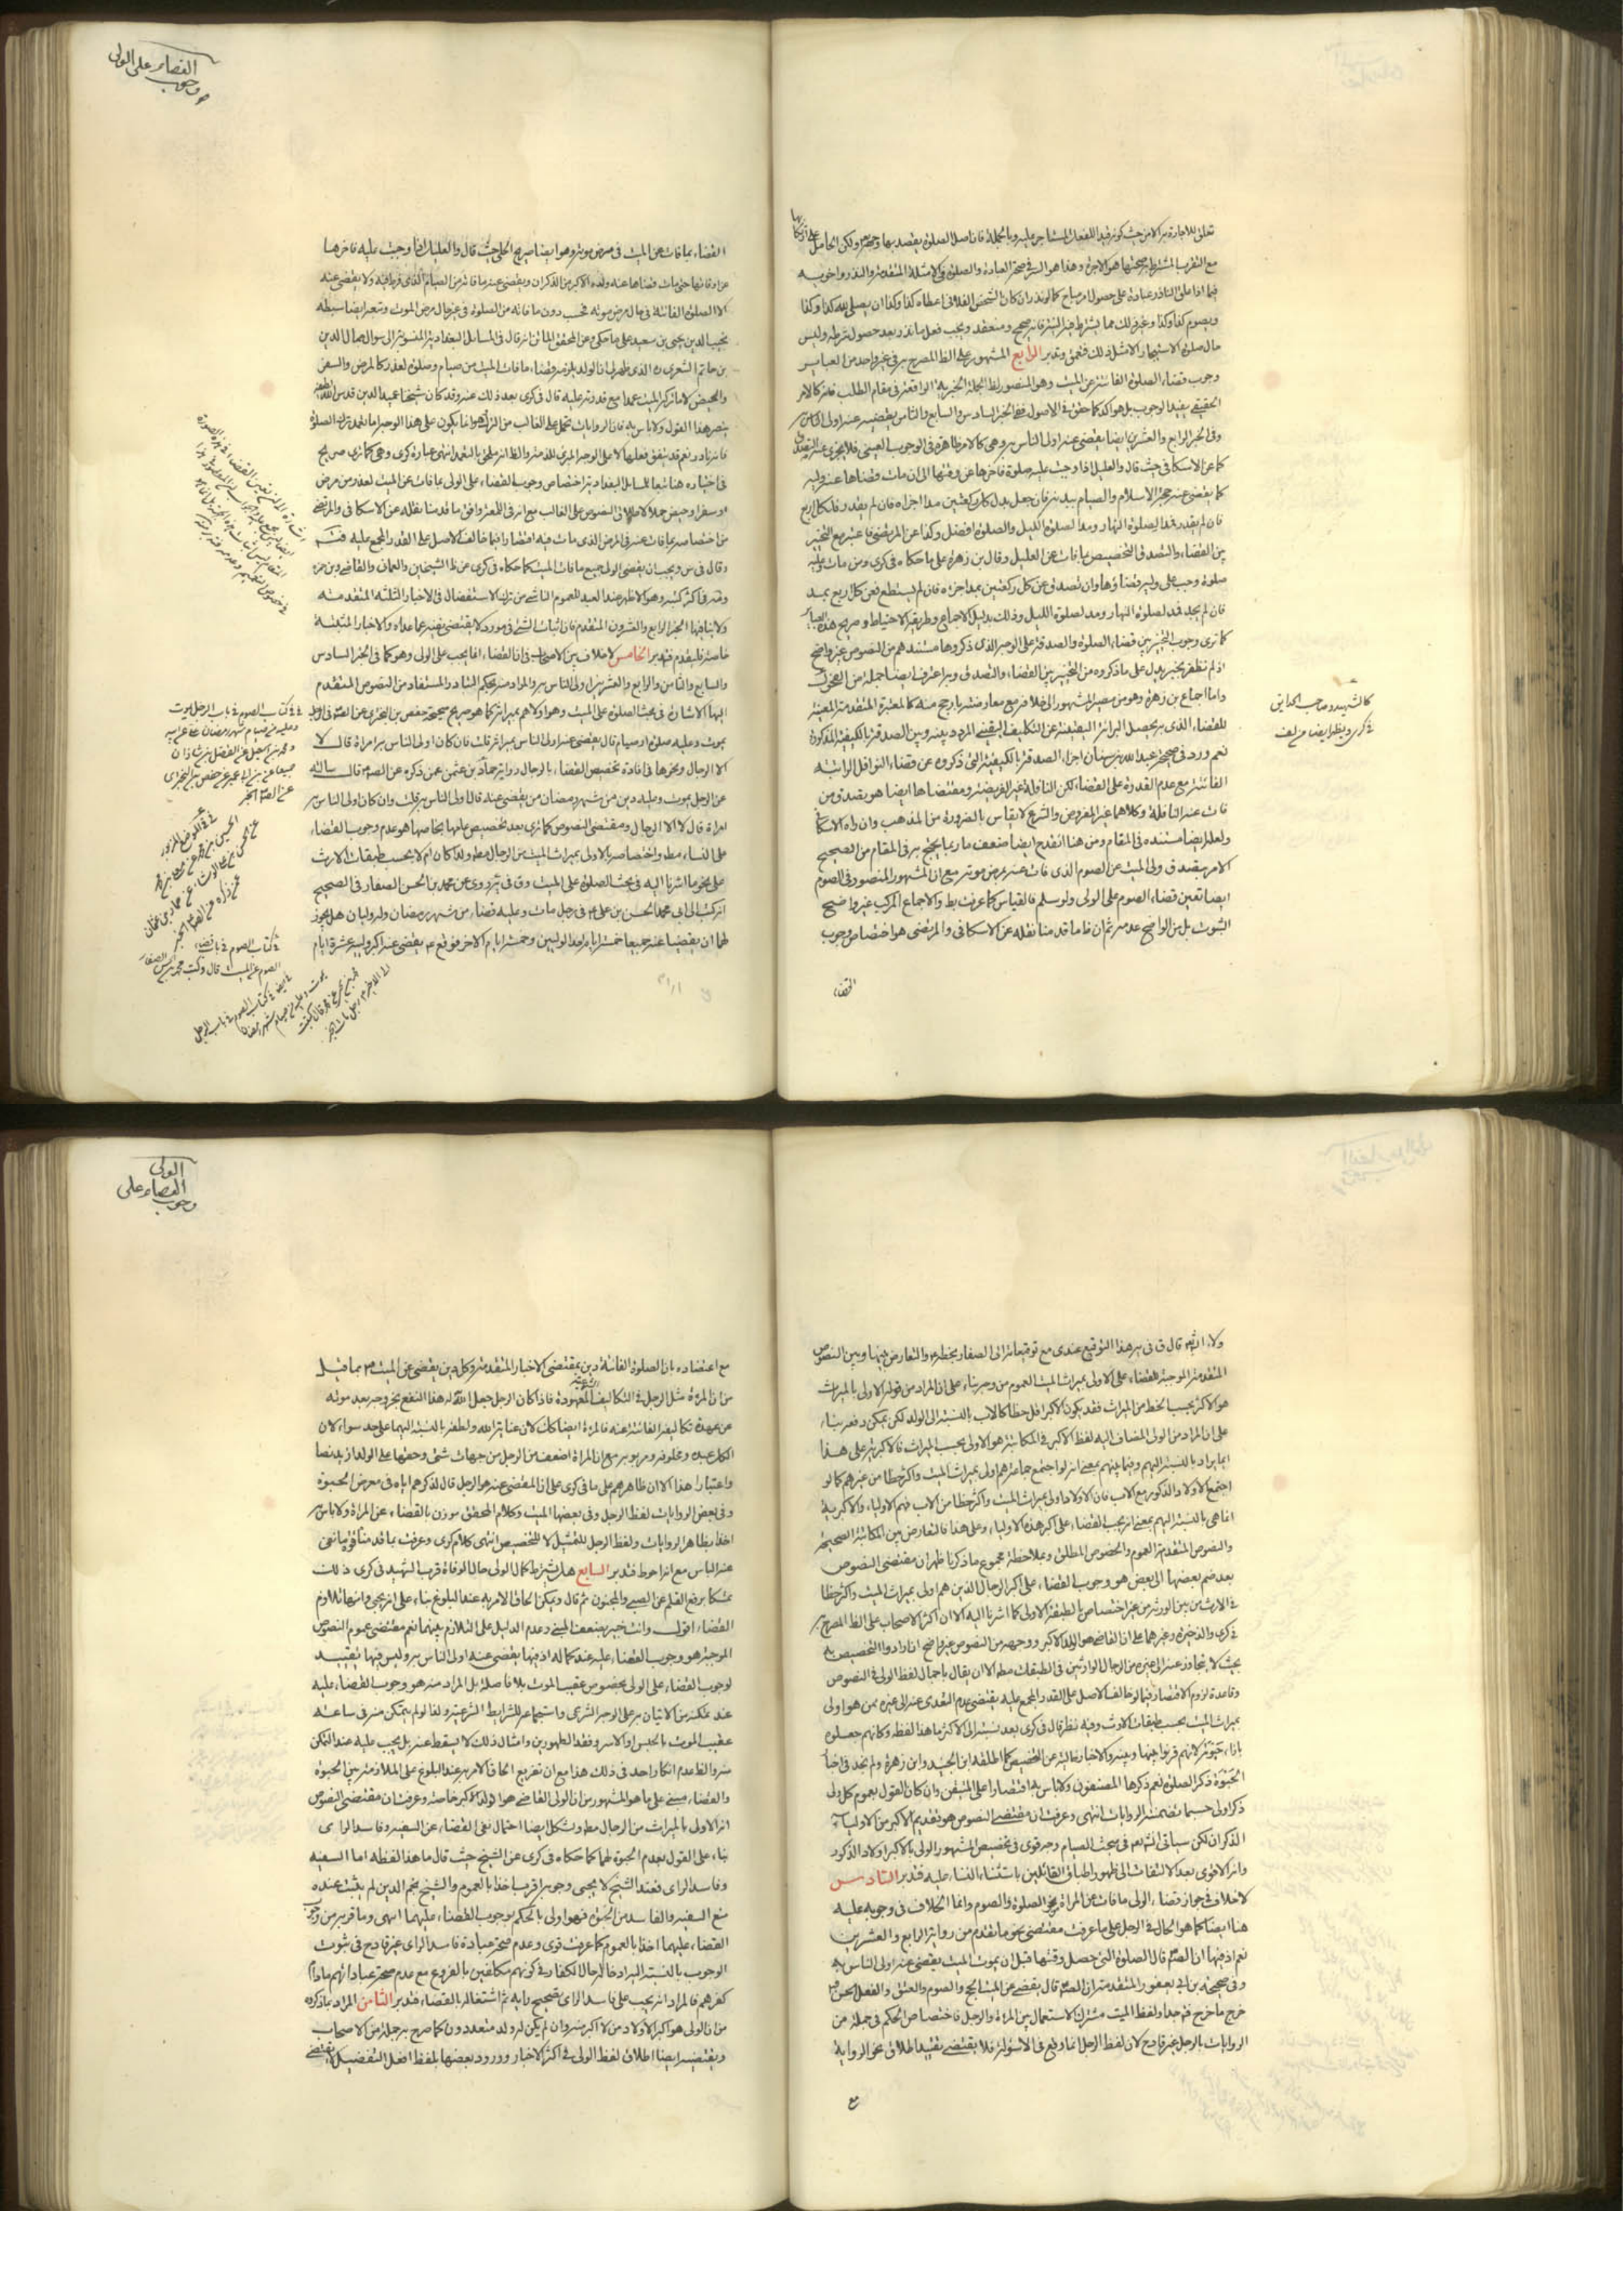 تعلق للاجارة
مع التقرب المشترط به صحتها هو الاجرة وهذا هو السر في صحة العبادة والصلوة في الامثلة المتقدمة والنذر واخويه
فيما اذا علق الناذر عبادة على حصول امر مباح كما لو نذر ان كان الشخص الفلاني اعطاه كذا وكذا ان يصلي لله كذا وكذا
ويصوم كذا وكذا وغير ذلك مما يشترط فيه القربة فانه صحيح ومنعقد ويجب فعل ما نذر بعد حصول شرطه وليس
حال صلوة الاستيجار الا مثل ذلك فتعمق وتدبر الرابع المشهور على الظ المصرح به في غير واحد من العباير
وجوب قضاء الصلوة الفائتة عن الميت وهو المنصور لظ الجملة الخبرية الواقعة في مقام الطلب فانه كالامر
الحقيقي يفيد الوجوب بل هو اكد كما حقق في الاصول ففي الخبر السادس والسابع والثامن يقضيه عنه اولى الناس به
وفي الخبر الرابع والعشرين ايضا يقضي عنه اولى الناس به وهي كالامر ظاهرة في الوجوب العيني فلا يجزي عنه التصدق
كما عن الاسكافي حيث قال والعليل اذا وجبت عليه صلوة فاخرها عن وقتها الى ان مات قضاها عنه وليه
كما يقضي عنه حجة الاسلام والصيام ببدنه فان جعل بدل كل ركعتين مدا اجزاه فان لم يقدر فلكل اربع
فان لم يقدر فمدا لصلوة النهار ومدا لصلوة الليل والصلوة افضل وكذا عن المرتضى فاعتبره مع التخيير
بين القضاء والتصدق التخصيص بما فات عن العليل وقال بن زهرة على ما حكاه في كرى ومن مات وعليه
صلوة وجب على وليه قضاؤها وان تصدق عن كل ركعتين بمد اجزاه فان لم يستطع فعن كل اربع بمد
فان لم يجد فمد لصلوة النهار ومد لصلوة الليل وذلك بدليل الاجماع وطريقة الاحتياط وصريح هذه العبائر
كما ترى وجوب التخيير بين قضاء الصلوة والصدقة على الوجه الذي ذكروها مستندهم من النصوص غير واضح
اذ لم نظفر بخبر يدل على ما ذكروه من التخيير بين القضاء والتصدق وبه اعترف ايضا جملة من الفحول
واما اجماع بن زهرة وهو من مصير المشهور الى خلافه مع معارضته بارجح منه كالمعتبرة المتقدمة المعينة
للقضاء الذي به يحصل البرائة اليقينية عن التكليف اليقيني المردد بينه وبين الصدقة بالكيفية المذكورة
نعم ورد في صحيحة عبد الله بن سنان اجزاء الصدقة بالكيفية التي ذكروه عن قضاء النوافل الراتبة
الفائتة مع عدم القدرة على القضاء لكن النافلة غير الفريضة ومقتضاها ايضا هو تصدق من
فات عنه النافلة وكلاهما غير المفروض والشرع لا يقاس بالضرورة من المذهب وان راه الاسكافي
ولعله ايضا مستنده في المقام ومن هنا انقدح ايضا ضعف ما ربما يحتج به في المقام من الصحيح
الامر بتصدق ولي الميت عن الصوم الذي فات عنه بمرض موته مع ان المشهور المنصور في الصوم
ايضا تعين قضاء الصوم على الولي ولو سلم فالقياس كما عرفت بط والاجماع المركب غير واضح
الثبوت بل من الواضح عدمه ثم ان ظ ما قدمنا نقله عن الاسكافي والمرتضى هو اختصاص وجوب
القضاء
كالشهيد وصاحب الحدائق
في كرى
وجوب القضاء على الولي
القضاء بما فات عن الميت في مرض موته وهو ايضا صريح الحلي حيث قال والعليل اذا وجبت عليه فاخرها
عن اوقاتها حتى مات قضاها عنه ولده الاكبر من الذكران ويقضي عنه ما فاته من الصيام الذي فرط فيه ولا يقضي عنه
الا الصلوة الفائتة في حال مرض موته فحسب دون ما فاته من الصلوة في غير حال مرض الموت وتبعه ايضا سبطه
نجيب الدين يحيى بن سعيد على ما حكي وعن المحقق الثاني انه قال في المسائل البغدادية المنسوبة الى سؤال جمال الدين
بن حاتم الشعري ره الذي ظهر لي ان الولد يلزمه قضاء ما فات الميت من صيام وصلوة لعذر كالمرض والسفر
والحيض لا ما تركه الميت عمدا مع قدرته عليه قال في كرى بعد ذلك عنه وقد كان شيخنا عميد الدين قدس الله لطيفه
ينصر هذا القول ولا باس به فان الروايات تحمل على الغالب من الترك وهو انما يكون على هذا الوجه اما تعمد ترك الصلوة
فانه نادر نعم قد يتفق فعلها لا على الوجه المبرئ للذمة والظ انه ملحق بالتعمد انتهى عبارة كرى وهي كما ترى صريح
في اختياره هنا تبعا للمسائل البغدادية اختصاص وجوب القضاء على الولي بما فات عن الميت لعذر من مرض
او سفر او حيض حملا لاطلاق النصوص على الغالب مع انه في اللمعة وافق ما قدمنا نقله عن الاسكافي والمرتضى
من اختصاصه بما فات عنه في المرض الذي مات فيه اقتصارا فيما خالف الاصل على القدر المجمع عليه
وقال في س ويجب ان يقضي الولي جميع ما فات الميت كما حكاه في كرى عن ظ الشيخين والعماني والقاضي وبن حمزة
وفي اكثر كتبه وهو الاظهر عند العبد للعموم الناشي من ترك الاستفصال في الاخبار الثلثة المتقدمة
ولا ينافيها الخبر الرابع والعشرون المتقدم فان اثبات الشئ في مورد لا يقتضي نفيه عما عداه والاخبار المثبتة
خاصة فليقدم فتدبر الخامس لا خلاف بين الاصحاب في ان القضاء انما يجب على الولي وهو كما في الخبر السادس
والسابع والثامن والرابع والعشرين اولى الناس به والمراد منه بحكم التبادر والمستفاد من النصوص المتقدم
اليها الاشارة في بحث الصلوة على الميت وهو اولاهم بميراثه كما هو صريح صحيحة حفص بن البختري عن الصادق في الرجل
يموت وعليه صلوة او صيام قال يقضي عنه اولى الناس بميراثه قلت فان كان اولى الناس به امراة قال لا
الا الرجال ونحوها في افادة تخصيص القضاء بالرجال رواية حماد بن عثمن عمن ذكره عن الصادق قال سالته
عن الرجل يموت وعليه دين من شهر رمضان من يقضي عنه قال اولى الناس به قلت وان كان اولى الناس به
امراة قال لا الا الرجال ومقتضى النصوص كما ترى بعد تخصيص عامها بخاصها هو عدم وجوب القضاء
على النساء مط واختصاصه بالاولى بميراث الميت من الرجال مط ولدا كان ام لا بحسب طبقات الارث
على نحو ما اشرنا اليه في بحث الصلوة على الميت وق في يه روى عن محمد بن الحسن الصفار في الصحيح
انه كتب الى ابي محمد الحسن بن علي ع في رجل مات وعليه قضاء من شهر رمضان وله وليان هل يجوز
لهما ان يقضيا عنه جميعا خمسة ايام احد الوليين وخمسة ايام الاخر فوقع ع يقضي عنه اكبر ولييه عشرة ايام
في كتاب الصوم في باب الرجل يموت
وعليه من صيام شهر رمضان
ومحمد بن اسمعيل عن الفضل بن شاذان
جميعا عن ابن ابي عمير عن حفص بن البختري
عن الصادق الخبر
في كتاب الصوم في باب قضاء
الصوم عن الميت قال وكتب محمد بن الحسن الصفار
ولاء انش قال ق في يه هذا التوقيع عندي مع توقيعاته الى الصفار بخطه ع والتعارض بينها وبين النصوص
المتقدمة الموجبة للقضاء على الاولى بميراث الميت العموم من وجه بناء على ان المراد من قوله الاولى بالميراث
هو الاكثر بحسب الحظ من الميراث فقد يكون الاكبر اقل حظا كالاب بالنسبة الى الولد لكن يمكن دفعه بناء
على ان المراد من الولي المضاف اليه لفظ الاكبر في المكاتبة هو الاولى بحسب الميراث فالاكبرية على هذا
انما يراد بالنسبة اليهم وفيما بينهم بمعنى انه لو اجتمع جماعة هم اولى بميراث الميت واكثر حظا من غيرهم كما لو
اجتمع الاولاد الذكور مع الاب فان الاولاد اولى بميراث الميت واكثر حظا من الاب فهم الاولياء والاكبرية
انما هي بالنسبة اليهم بمعنى انه يجب القضاء على اكبر هذه الاولياء وعلى هذا فالتعارض بين المكاتبة الصحيحة
والنصوص المتقدمة العموم والخصوص المطلق وبملاحظة مجموع ما ذكرنا ظهر ان مقتضى النصوص
بعد ضم بعضها الى بعض هو وجوب القضاء على اكبر الرجال الذين هم اولى بميراث الميت واكثر حظا
في الارث من بين الورثة من غير اختصاص بالطبقة الاولى كما اشرنا اليه الا ان اكثر الاصحاب على الظ المصرح به
في كرى والذخيرة وغيرهما على ان القاضي هو الولد الاكبر ووجهه من النصوص غير واضح ان ارادوا التخصيص به
بحيث لا يتجاوز عنه الى غيره من الرجال الوارثين في الطبقات مط الا ان يقال باجمال لفظ الولي في النصوص
وقاعدة لزوم الاقتصار فيما خالف الاصل على القدر المجمع عليه يقتضي عدم التعدي عنه الى غيره ممن هو اولى
بميراث الميت بحسب طبقات الارث وفيه نظر قال في كرى بعد نسبته الى الاكثر ما هذا لفظه وكانهم جعلوه
بازاء حبوته لانهم قرنوا بينها وبينه والاخبار خالية عن التخصيص كما اطلقه ابن الجنيد وابن زهرة ولم نجد في اخبار
الحبوة ذكر الصلوة نعم ذكرها المصنفون ولا باس به اقتصارا على المتيقن وان كان القول بعموم كل ولي
ذكر اولى حسبما تضمنته الروايات انتهى وعرفت ان مقتضى النصوص هو تقديم الاكبر من الاولياء
الذكران لكن سياتي انش تعم في بحث الصيام وجه قوي في تخصيص المشهور الولي بالاكبر اولاد الذكور
وانه الاقوى بعد الالتفات الى ظهور اطباق القائلين باستثناء النساء عليه فتدبر السادس
لا خلاف في جواز قضاء الولي ما فات عن المراة نحو الصلوة والصوم وانما الخلاف في وجوبه عليه
هنا ايضا كما هو الحال في الرجل على ما عرفت مقتضى نحو ما تقدم من رواية الرابع والعشرين
نعم اذ فيها ان الصادق قال الصلوة التي حصل وقتها قبل ان يموت الميت يقضي عنه اولى الناس به
وفي صحيحة بن ابي يعفور المتقدمة ان الصادق قال يقضي عن الميت الحج والصوم والعتق والفعل الحسن
خرج ما خرج فتوجه ولفظ الميت مشترك الاستعمال بين المراة والرجل فاختصاص الحكم في جملة من
الروايات بالرجل غير قادح لان لفظ الرجل انما وقع في الاسئولة فلا يقتضي تقييد اطلاق نحو الرواية
مع
وجوب القضاء على الولي
مع اعتضاده بان الصلوة الفائتة دين بمقتضى الاخبار المتقدمة وكل دين يقضى عن الميت بما قبل
من ان المراة مثل الرجل في التكاليف الشرعية المعهودة فاذا كان الرجل جعل الله له هذا النفع بخروجه بعد موته
عن عهدة تكاليفه الفائتة عنه فالمراة ايضا كك لان عناية الله ولطفه بالنسبة اليهما على حد سواء لان
الكل عبيده ومخلوقه ومربوبه مع ان المراة اضعف من الرجل من جهات شتى وحقها على الولد ازيد نصا
واعتبارا هذا الا ان ظاهرهم على ما في كرى على ان المقضي عنه هو الرجل قال لذكرهم اياه في معرض الحبوة
وفي بعض الروايات لفظ الرجل وفي بعضها الميت وكلام المحقق موزن بالقضاء عن المراة ولا باس به
اخذا بظاهر الروايات ولفظ الرجل للتمثيل لا للتخصيص انتهى كلام كرى وعرفت بما قدمنا قوة ما نفى
عنه الباس مع انه احوط فتدبر السابع هل يشترط كمال الولي حال الوفاة قرب الشهيد في كرى ذلك
تمسكا برفع القلم عن الصبي والمجنون ثم قال ويمكن الحاق الامر به عند البلوغ بناء على انه يحبى وانها تلازم
القضاء اقول وانت خبير بضعف المبنى وعدم الدليل على التلازم بينهما نعم مقتضى عموم النصوص
الموجبة هو وجوب القضاء عليه عند كماله اذ فيها يقضي عنه اولى الناس به وليس فيها تقييد
لوجوب القضاء على الولي بخصوص عقيب الموت بلا فاصلة بل المراد منه هو وجوب القضاء عليه
عند تمكنه من الاتيان به على الوجه الشرعي واستجماعه للشرايط الشرعية ولذا لو لم يتمكن منه في ساعته
عقيب الموت بالحبس او الاسر وفقد الطهورين وامثال ذلك لا يسقط عنه بل يجب عليه عند التمكن
منه والظ عدم انكار احد في ذلك هذا مع ان تفريع الحاق الامر به عند البلوغ على الملازمة بين الحبوة
والقضاء مبني على ما هو المشهور من ان الولي القاضي هو الولد الاكبر خاصة وعرفت ان مقتضى النصوص
انه الاولى بالميراث من الرجال مط ويشكل ايضا احتمال نفي القضاء عن السفيه وفاسد الراى
بناء على القول بعدم الحبوة لهما كما حكاه في كرى عن الشيخ حيث قال ما هذا لفظه اما السفيه
وفاسد الراى فعند الشيخ لا يحبى ووجوبه اقرب اخذا بالعموم والشيخ نجم الدين لم يثبت عنده
منع السفيه والفاسد من الحبوة فهو اولى بالحكم بوجوب القضاء عليهما انتهى وما قربه من وجوب
القضاء عليهما اخذا بالعموم كما عرفت قوي وعدم صحة عبادة فاسد الراى غير قادح في ثبوت
الوجوب بالنسبة اليه اذ حاله حال الكفار في كونهم مكلفين بالفروع مع عدم صحة عباداتهم ما داموا
كفرهم فالمراد انه يجب على فاسد الراى تصحيح رايه ثم اشتغاله بالقضاء فتدبر الثامن المراد بما ذكروه
من ان الولي هو اكبر الاولاد من لا اكبر منه وان لم يكن له ولد متعددون كما صرح به جملة من الاصحاب
ويقتضيه ايضا اطلاق لفظ الولي في اكثر الاخبار وورود بعضها بلفظ افعل التفضيل لا يقتضي